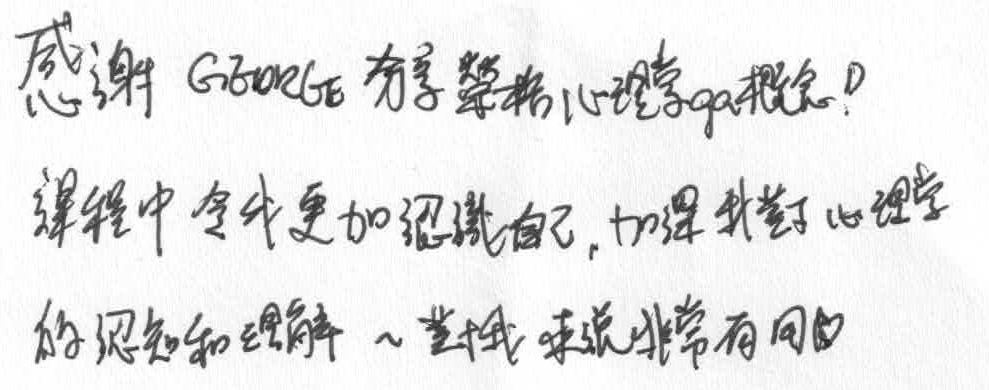 感謝 GEORGE 分享榮格心理學ga概念!
課程中令我更加認識自己,加深我對心理學
的認知和理解 ~ 對我來說非常有用♡